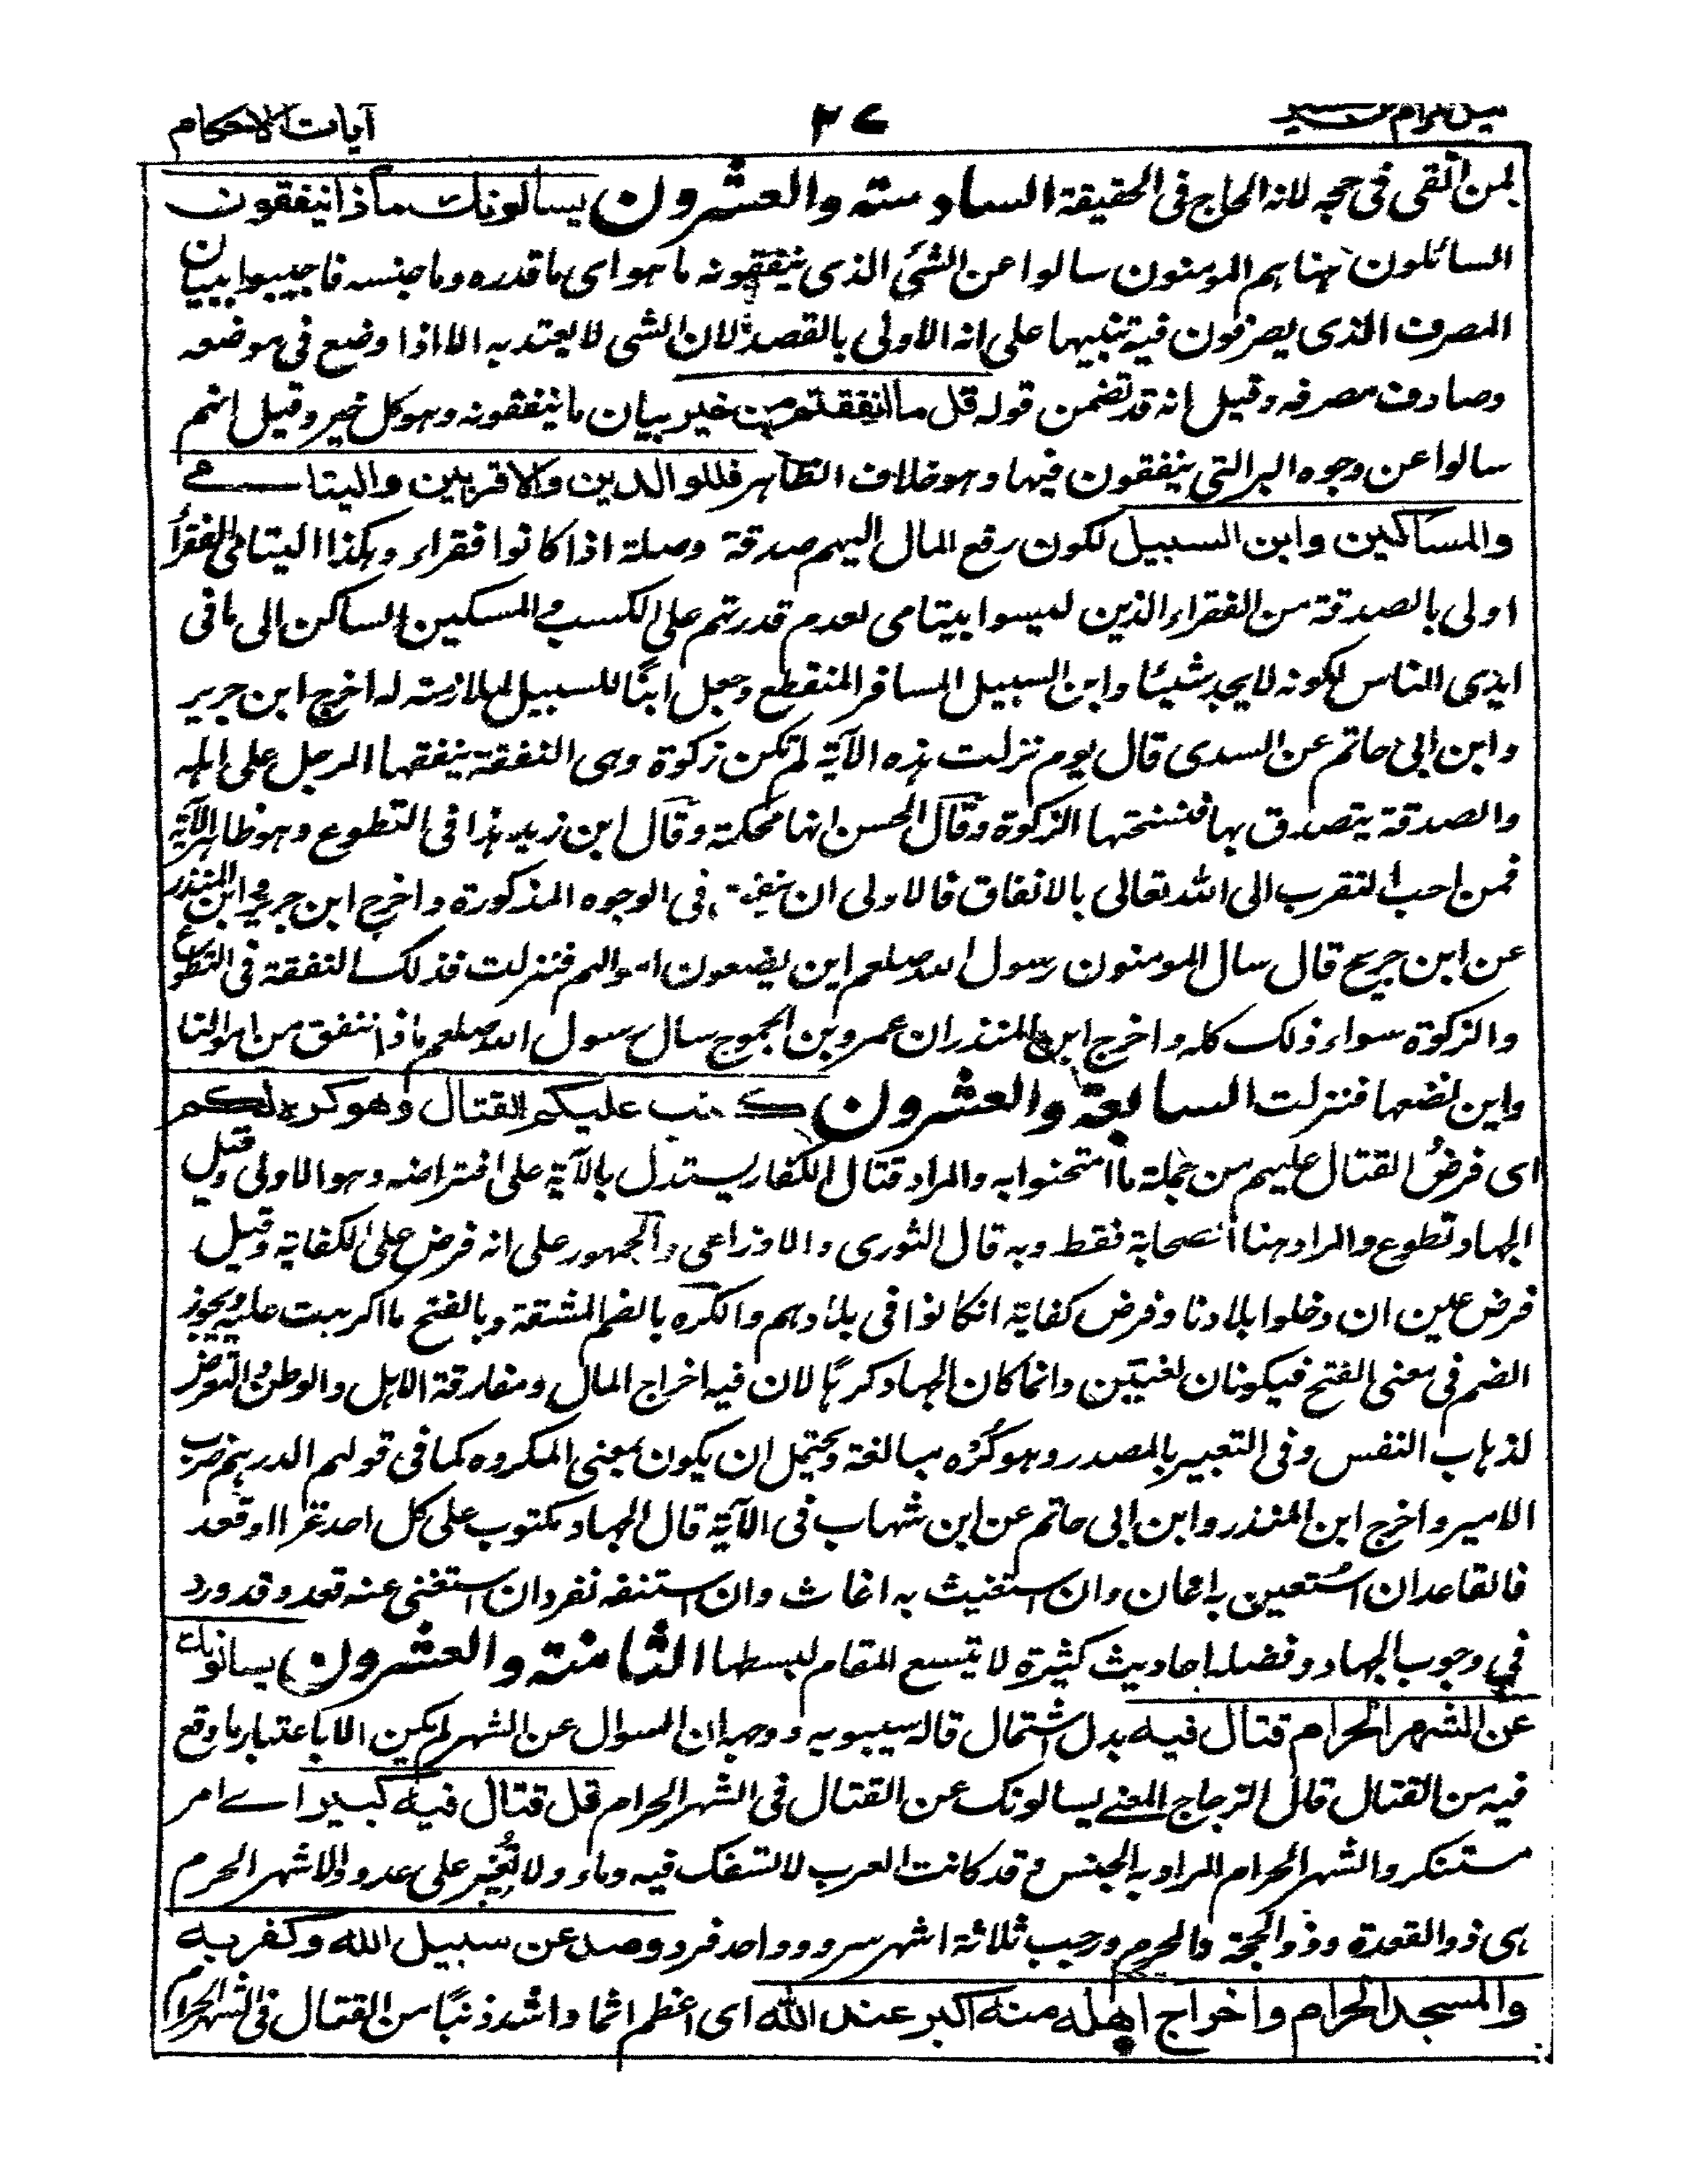 نيل المرام من تفسير ٣٧ آيات الاحكام
لمن اتقى فى حجه لانه الحاج فى الحقيقة السادسته والعشرون يسألونك ماذا ينفقون
السائلون ههنا هم المومنون سالوا عن الشئ الذى ينفقونه ما هو اى ما قدره وما جنسه فاجيبوا ببيان
المصرف الذى يصرفون فيه تنبيها على انه الاولى بالقصد لان الشى لا يعتد به الا اذا وضع فى موضعه
وصادف مصرفه وقيل انه قد تضمن قوله قل ما انفقتم من خير بيان ما ينفقونه وهو كل خير وقيل انهم
سالوا عن وجوه البر التى ينفقون فيها وهو خلاف الظاهر فللوالدين والاقربين واليتامے
والمساكين وابن السبيل لكون رفع المال اليهم صدقة وصلة اذا كانوا فقراء وهكذا اليتامى الفقراء
اولى بالصدقة من الفقراء الذين ليسوا بيتامى لعدم قدرتهم على الكسب والمسكين الساكن الى ما فى
ايدى الناس لكونه لا يجد شيئا وابن السبيل المسافر المنقطع وجعل ابنًا للسبيل لملازمته له اخرج ابن جرير
وابن ابى حاتم عن السدى قال يوم نزلت هذه الآية لم تكن زكوة وهى النفقة ينفقها الرجل على اهله
والصدقة يتصدق بها فنسختها الزكوة وقال الحسن انها محكمة وقال ابن زيد هذا فى التطوع وهو ظاهر الآية
فمن احب التقرب الى الله تعالى بالانفاق فالاولى ان ينفق فى الوجوه المذكورة واخرج ابن جرير وابن المنذر
عن ابن جريج قال سال المومنون رسول الله صلعم اين يضعون اموالهم فنزلت فذلك النفقة فى التطوع
والزكوة سواء ذلك كله واخرج ابن المنذر ان عمرو بن الجموح سال رسول الله صلعم ماذا ننفق من اموالنا
واين نضعها فنزلت السابعة والعشرون كتب عليكم القتال وهو كره لكم
اى فرض القتال عليهم من جملة ما امتحنوا به والمراد قتال الكفار يستدل بالآية على افتراضه وهو الاولى وقيل
الجهاد تطوع والمراد هنا الصحابة فقط وبه قال الثورى والاوزاعى والجمهور على انه فرض على الكفاية وقيل
فرض عين ان دخلوا بلادنا وفرض كفاية انكانوا فى بلادهم والكره بالضم المشقة وبالفتح ما اكرهت عليه ويجوز
الضم فى معنى الفتح فيكونان لغتين وانما كان الجهاد كرهًا لان فيه اخراج المال ومفارقة الاهل والوطن والتعرض
لذهاب النفس وفى التعبير بالمصدر وهو كُرْه مبالغة ويحتمل ان يكون بمعنى المكروه كما فى قولهم الدرهم ضرب
الامير واخرج ابن المنذر وابن ابى حاتم عن ابن شهاب فى الآية قال الجهاد مكتوب على كل احد غزا او قعد
فالقاعد ان استعين به اعان وان استغيث به اغاث وان استنفر نفر وان استغنى عنه قعد وقد ورد
فى وجوب الجهاد وفضله احاديث كثيرة لا يتسع المقام لبسطها الثامنته والعشرون يسألونك
عن الشهر الحرام قتال فيه بدل اشتمال قاله سيبويه ووجهه ان السوال عن الشهر لم يكن الا باعتبار ما وقع
فيه من القتال قال الزجاج المعنے يسالونك عن القتال فى الشهر الحرام قل قتال فيه كبير اے امر
مستنكر والشهر الحرام المراد به الجنس وقد كانت العرب لا تسفك فيه دماء ولا تُغير على عدو والاشهر الحرم
هى ذو القعدة وذو الحجة والمحرم ورجب ثلاثة اشهر سرد وواحد فرد وصد عن سبيل الله وكفر به
والمسجد الحرام واخراج اهله منه اكبر عند الله اى اعظم اثما واشد ذنبًا من القتال فى الشهر الحرام